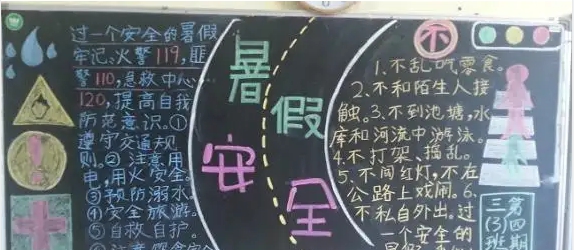 过一个安全的暑假
牢记。火警119,匪
警110,急救中心
120,提高自我
防范意识。①
遵守交通规
则。② 注意用
电,用火安全。
③预防溺水。
④安全旅游。
⑤自救自护。
暑假
安全
不
1.不乱吃零食。
2.不和陌生人接
触。3.不到池塘,水
库和河流中游泳。
4.不打架、捣乱。
5.不闯红灯,不在
公路上戏闹。6.
不私自外出。过
一个安全的
第四期
三(3)班